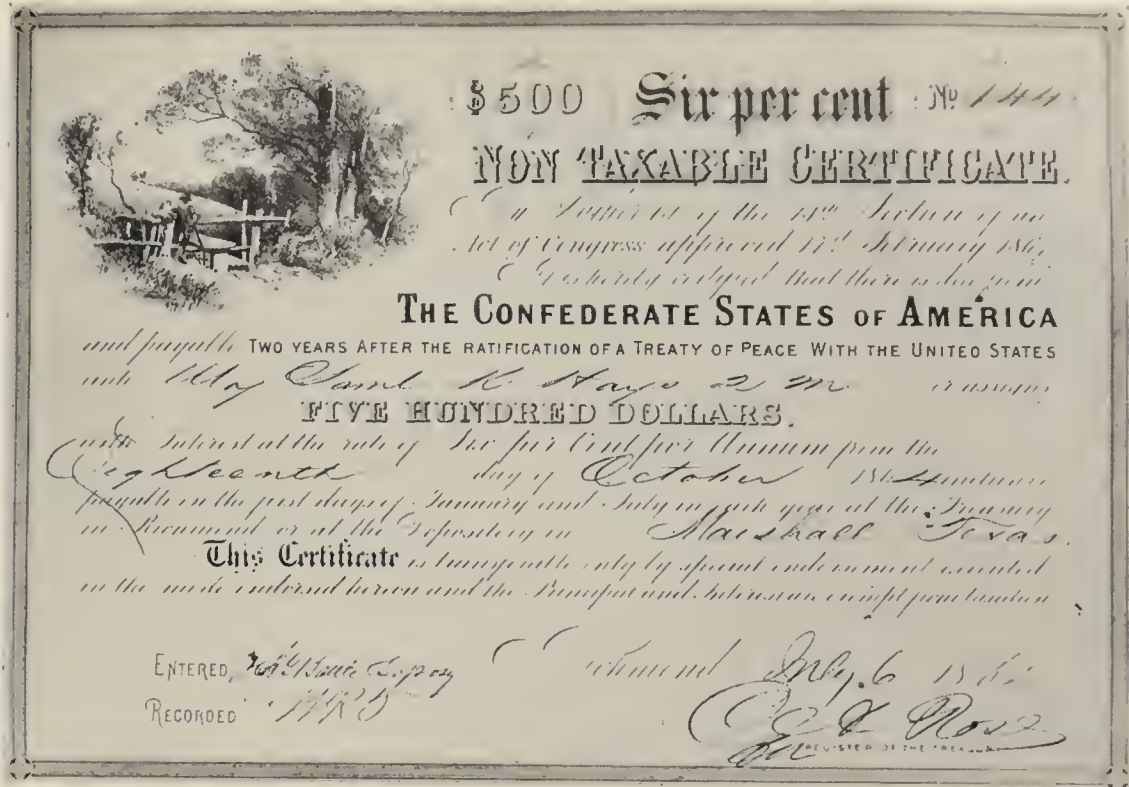 $500 Six per cent No 144
NON TAXABLE CERTIFICATE.
of the 14th Section of an
Act of Congress approved 17th February 186
hereby certified that there is due from
THE CONFEDERATE STATES OF AMERICA
and payable TWO YEARS AFTER THE RATIFICATION OF A TREATY OF PEACE WITH THE UNITED STATES
unto Maj Saml K. Hays 2 M. or assigns
FIVE HUNDRED DOLLARS.
with Interest at the rate of Six per Cent per Annum from the
Eighteenth day of October 1864
payable on the first days of January and July in each year at the Treasury
in Richmond or at the Depository in Marshall Texas.
This Certificate is transferable only by special endorsement executed
in the mode endorsed hereon and the Principal and Interest are exempt from taxation
ENTERED, Richmond July. 6 186
RECORDED
Ross
REGISTER OF THE TREASURY